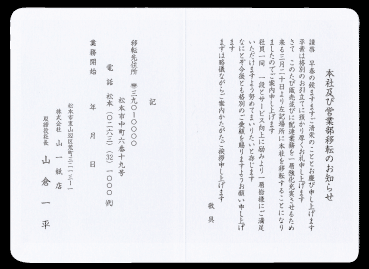 本社及び営業部移転のお知らせ
謹啓　早春の候ますますご清栄のこととお慶び申し上げます
平素は格別のお引立てに預かり厚くお礼申し上げます
さて　このたび販売並びに配達業務を一層強化充実させるため
来る三月二十日より左記場所に本社を移転することになり
ましたのでご案内申し上げます
社員一同　一段とサービス向上に励みより一層皆様にご満足
いただけますよう努めてまいりたいと存じます
なにとぞ今後とも格別のご愛顧を賜りますようお願い申し上げ
ます
まずは略儀ながらご案内かたがたご挨拶申し上げます
敬具
記
移転先住所　〒三九〇-〇〇〇〇
松本市中町六番十九号
電話　松本（〇二六三）(32)一〇〇〇(代)
業務開始　年　月　日
株式会社　山一紙店
取締役社長　山倉一平